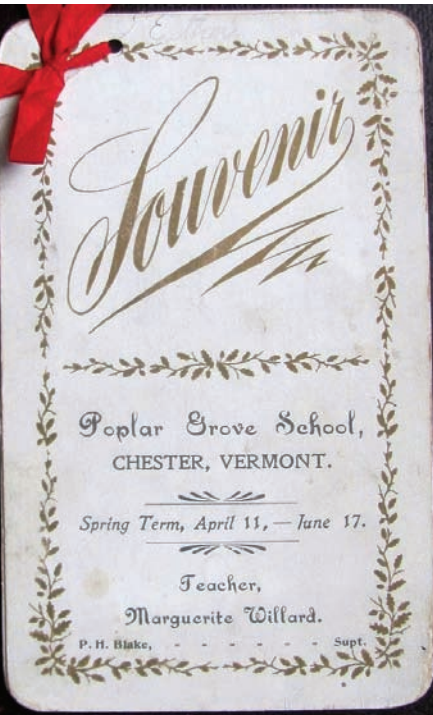 Souvenir
Poplar Grove School,
CHESTER, VERMONT.
Spring Term, April 11, — June 17.
Teacher,
Marguerite Willard.
P. H. Blake, - - - - - - Supt.